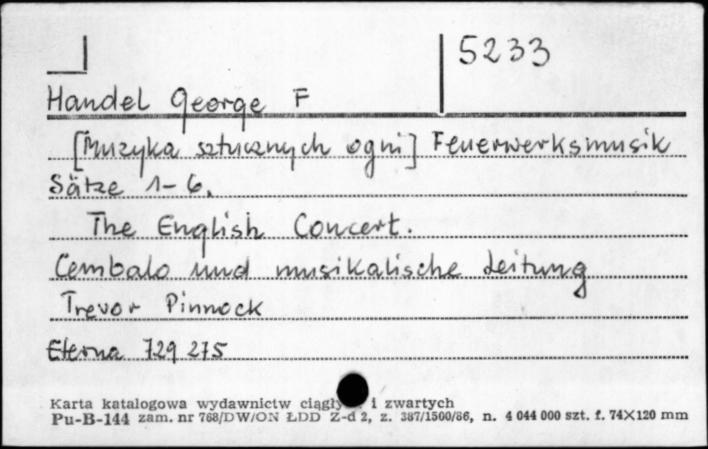 5233
Handel George F
[Muzyka sztucznych ogni] Feuerwerksmusik
Sätze 1-6.
The English Concert.
Cembalo und musikalische Leitung
Trevor Pinnock
Eterna 729 275
Karta katalogowa wydawnictw i zwartych
Pu-B-144 zam. nr 768/DW/ON ŁDD Z-d 2, z. 387/1500/86, n. 4 044 000 szt. f. 74×120 mm